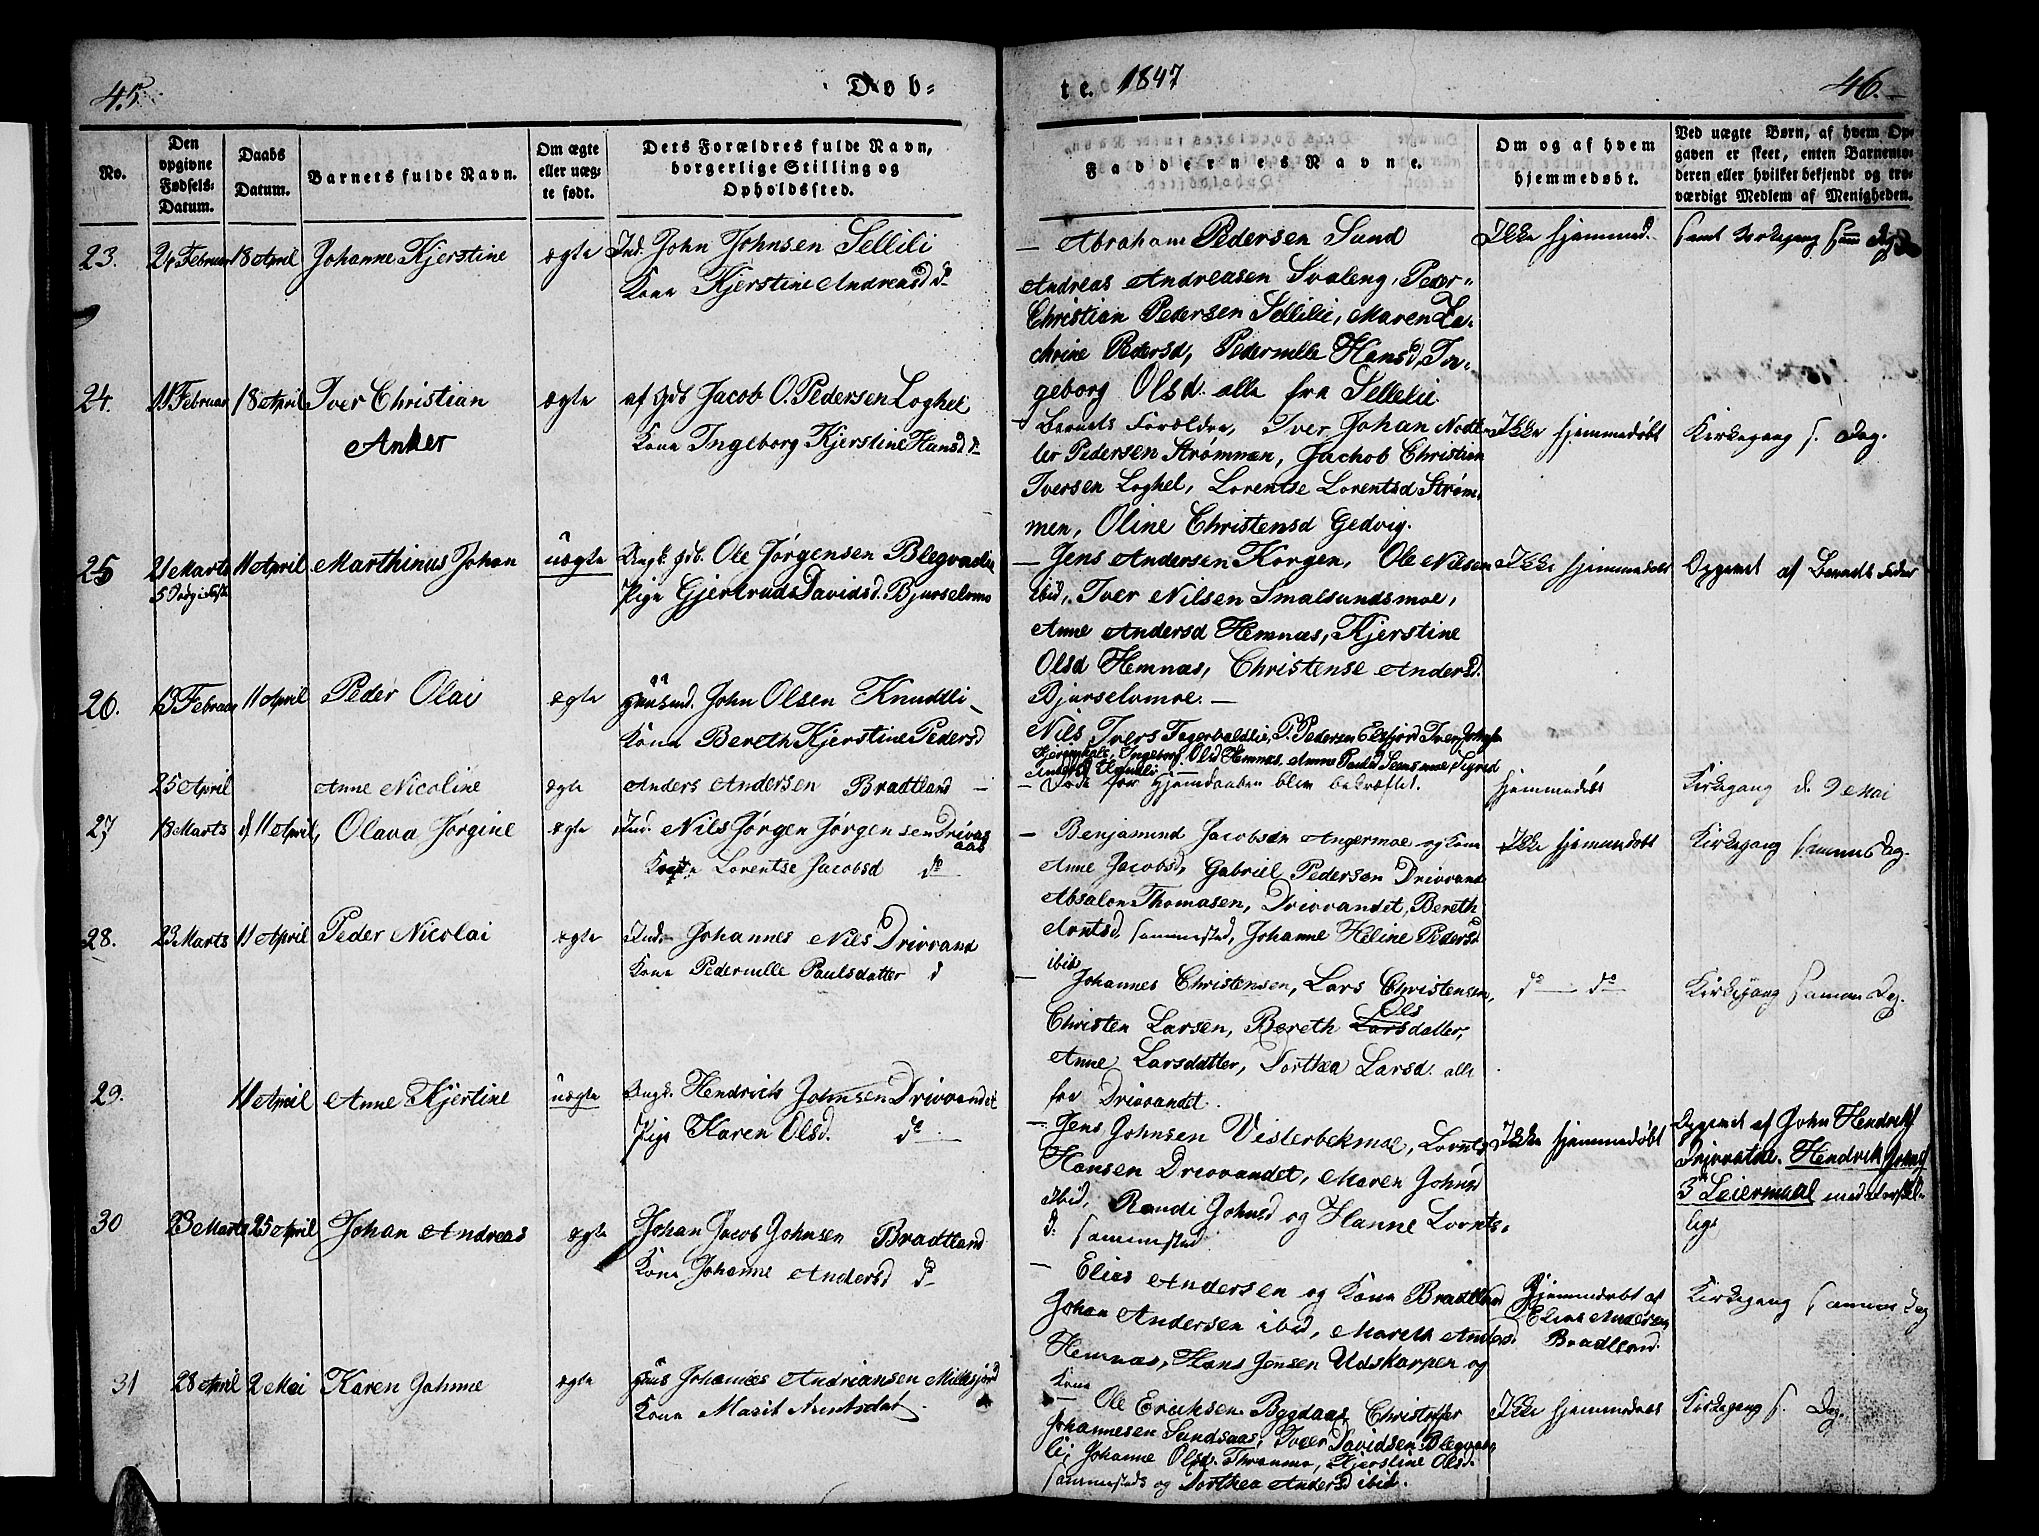 45.
Døb-
te. 1847
46.
No.
Den opgivne Fødsels-Datum.
Daabs Datum.
Barnets fulde Navn.
Om ægte eller uæg-te født.
Dets Forældres fulde Navn, borgerlige Stilling og Opholdsfted.
Faddernes Navne.
Om og af hvem hjemmedøbt.
Ved uægte Børn, af hvem Op-gaven er skeet, enten Barnemo-deren eller hvilket bekjendt og tro-værdigt Medlem af Menigheden.
23. 24 Februar 18 April Johanne Kjerstine ægte Ind. John Johnsen Sellili
Kone Kjerstine Andreasd do
— Abraham Pedersen Sund
Andreas Andreasen Svaleng, Peder
Christian Pedersen Sellilie, Maren Za-
chrine Pedersd, Pedernille Hansd, In-
geborg Olsd. alle fra Sellelie
Ikke hjemmed.
samt Kirkegang sam Dag
24. 11 Februar 18 April Iver Christian
Anker
ægte af Gdb Jacob O. Pedersen Loghel
Kone Ingeborg Kjerstine Hansd do
— Barnets Forældre, Iver Johan Nodt-
ler Pedersen Strømmen, Jachob Christian
Iversen Loghel, Lorentse Lorentsd Strøm-
men, Oline Christensd Gedvig.
Ikke hjemmedøbt
Kirkegang s. Dag.
25 21 Marts 11 April Marthinus Johan uægte Ungk. Gdb. Ole Jørgensen Blegvadli
Pige Gjertrud Davidsd. Bjurselvmo
— Jens Andersen Korgen, Ole Nilsen
ibid, Iver Nilsen Smalsundsmoe,
Anne Andersd Hemnæs, Kjerstine
Olsd Hemnæs, Christense Andersd.
Bjurselvmoe. —
Ikke hjemmedøbt
Opgivet af Barnets Fader
26. 13 Februar 11 April Peder Olai ægte Huusmd. John Olsen Knudtli
Kone Bereth Kjerstine Pedersd
Nils Ivers Fagerbaklie, P. Pedersen Elsfjord
Ingeborg Olsd Hemnæs, Anne
25 April Anne Nicoline ægte Anders Andersen Bradtland —
— Døde før Hjemdaaben blev bekræftet.
hjemmedøbt
Kirkegang d. 9 Mai
27 18 Marts d. 11 April, Olava Jørgine ægte Ind. Nils Jørgen Jørgensen Drivas
aas
Kone Lorentse Jacobsd do
— Benjamind Jacobsen Angermoe og Kone
Anne Jacobsd, Gabriel Pedersen Drivvand
Absalon Thomasen, Drivvandet, Bereth
Arntsd. sammested, Johanne Heline Pedersd
ibid
Ikke hjemmedøbt
Kirkegang samme Dag.
28. 23 Marts 11 April Peder Nicolai ægte Ind. Johannes Nils Drivvand
Kone Pedernille Paulsdatter d
— Johannes Christensen, Lars Christensen,
Ols
Christen Larsen, Bereth Larsdatter,
Anne Larsdatter, Dorthea Larsd. alle
fra Drivvandet.
do — do
Kirkegang samme Dag.
29. 11 April Anne Kjertine uægte Ungk. Hendrich Johnsen Drivvandet
Pige Karen Olsd. do
— Jens Johnsen Visterbekmoe, Lornts
Hansen Drivvandet, Maren Johnsd
Ibid, Randi Johnsd og Hanne Lornts-
d: sammested
Ikke hjemmedøbt
Opgivet af John Hendriks
Drivvatne. Hendrik Johns
3die Leiermaal med
lige
30 23 Marts 25 April Johan Andreas ægte Johan Jacob Johnsen Bradtland
Kone Johanne Andersd do
— Elias Andersen og Kone Bradtland
Johan Andersen ibid, Mareth Andersd.
Hemnæs, Hans Jensen Udskarpen og
Kone
Hjemmedøbt af
Elias Andersen
Bradtland.
Kirkegang samme Dag
31 28 April 2 Mai Karen Johnne ægte Huus Johannes Andriansen Mulesjord
Kone Marit Arntsdat.
— Ole Eriksen Bygdaas Christoffer
Johannesen Sundsaas, Iver Davidsen Blegvas
li, Johanne Olsd. Thraunmo, Kjerstine Olsd.
sammesteds og Dorthea Andersd ibid.
Ikke hjemmedøbt
Kirkegang s. Dag.